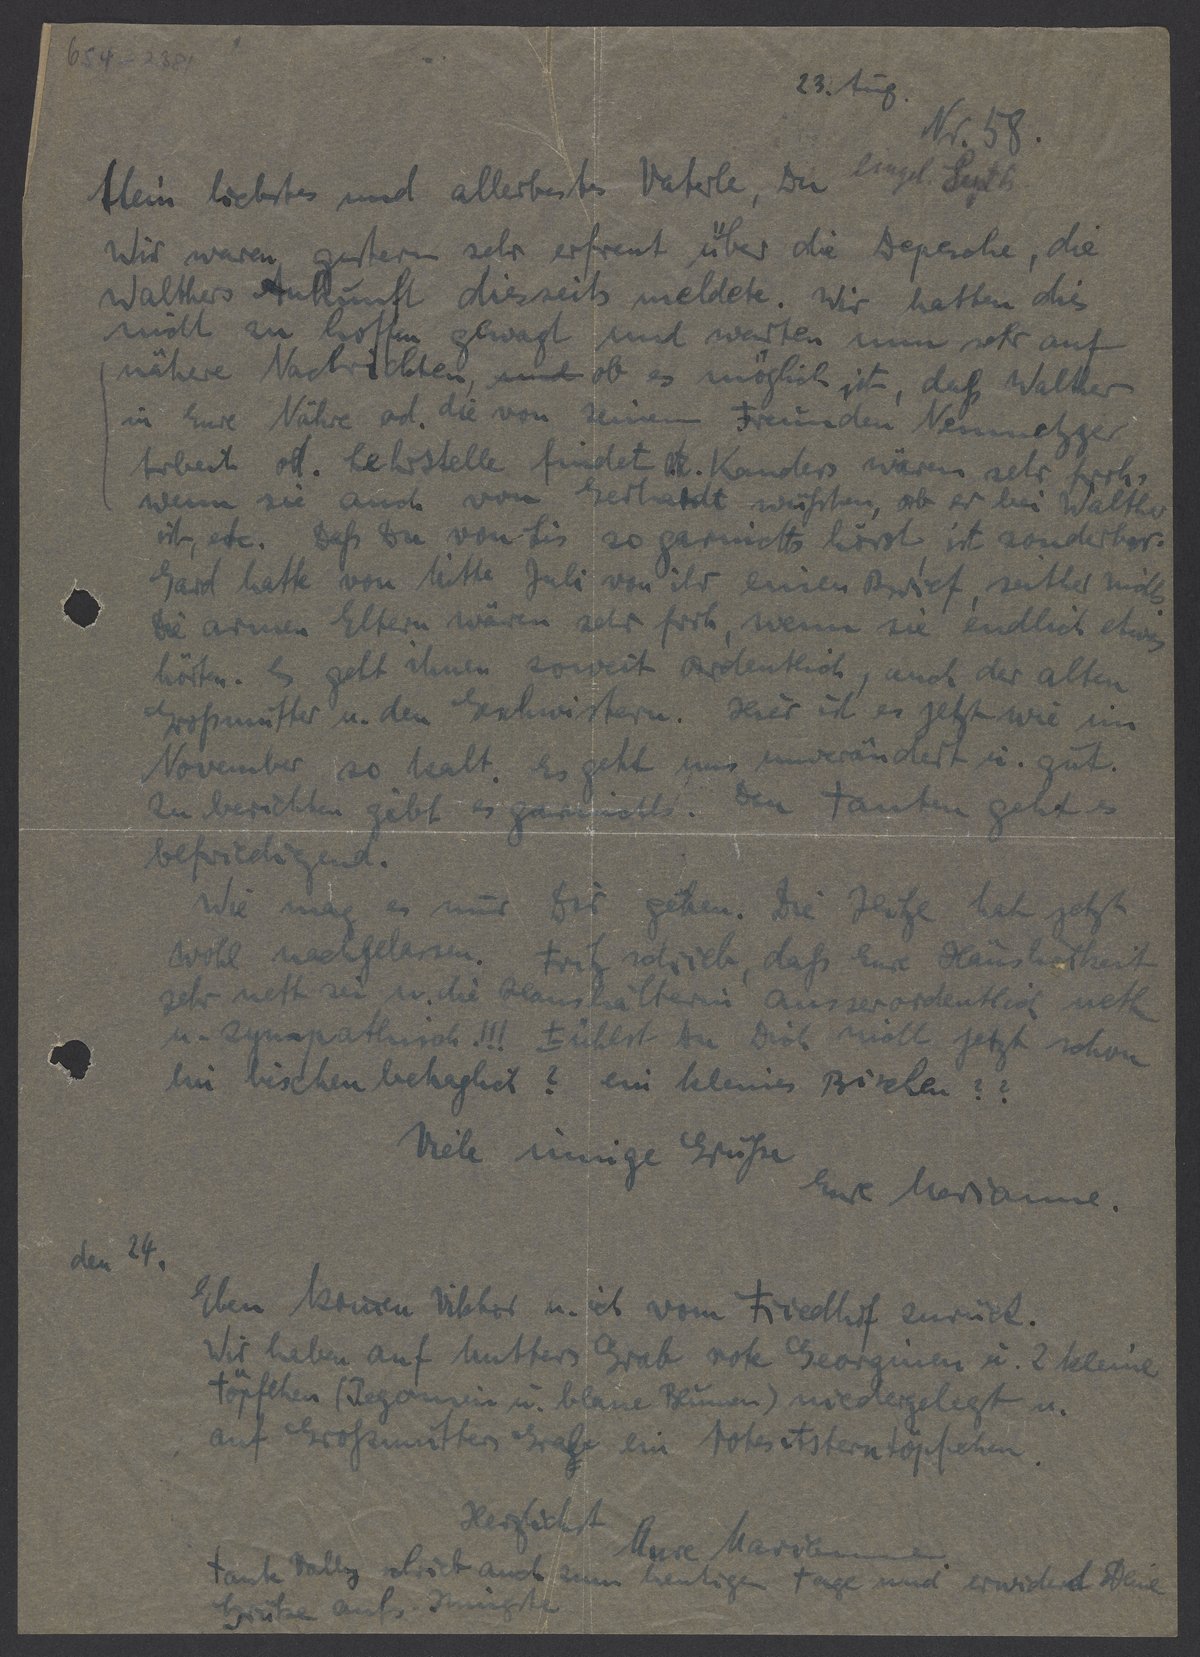 654-2381
23. Aug.
Nr. 58.
Mein liebstes und allerbestes Vaterle, Du
eingel. Sept.
Wir waren gestern sehr erfreut über die Depesche, die
Walthers Ankunft diesseits meldete. Wir hatten dies
nicht zu hoffen gewagt und warten nun sehr auf
nähere Nachrichten, und ob es möglich ist, daß Walther
in Eure Nähe od. die von seinem Freunden Nennmetzger
Arbeit od. Lehrstelle findet. Kanders wären sehr froh,
wenn sie auch von Gerhardt wüßten, ob er bei Walther
ist, etc. Daß Du von Lis so garnichts hörst, ist sonderbar.
Gard hatte von Mitte Juli von ihr einen Brief, seither nichts
Die armen Eltern wären sehr froh, wenn sie endlich etwas
hörten. Es geht ihnen soweit ordentlich, auch der alten
Großmutter u. den Geschwistern. Hier ist es jetzt wie im
November so kalt. Es geht uns unverändert u. gut.
Zu berichten gibt es garnichts. Den Tanten geht es
befriedigend.
Wie mag es nur Dir gehen. Die Hitze hat jetzt
wohl nachgelassen. Fritz schrieb, daß Eure Häuslichkeit
sehr nett sei u. die Haushälterin ausserordentlich nett
u. sympathisch!!! Fühlst Du Dich nicht jetzt schon
ein bischen behaglich? ein kleines Bischen??
Viele innige Grüße
Eure Marianne.
den 24.
Eben kommen Viktor u. ich vom Friedhof zurück.
Wir haben auf Mutters Grab rote Georginen u. 2 kleine
Töpfchen (Begonien u. blaue Blumen) niedergelegt u.
auf Großmutters Grab ein rotes Asterntöpfchen.
Herzlichst
Eure Marianne
Tante Vally schrieb auch zum heutigen Tage und erwidert Deine
Grüße aufs Innigste